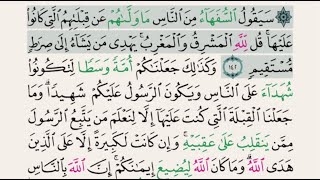 ۞ سَيَقُولُ ٱلسُّفَهَآءُ مِنَ ٱلنَّاسِ مَا وَلَّىٰهُمْ عَن قِبْلَتِهِمُ ٱلَّتِي كَانُوا۟
عَلَيْهَا ۚ قُل لِّلَّهِ ٱلْمَشْرِقُ وَٱلْمَغْرِبُ ۚ يَهْدِي مَن يَشَآءُ إِلَىٰ صِرَٰطٍ
مُّسْتَقِيمٍ ١٤٢ وَكَذَٰلِكَ جَعَلْنَٰكُمْ أُمَّةً وَسَطًا لِّتَكُونُوا۟
شُهَدَآءَ عَلَى ٱلنَّاسِ وَيَكُونَ ٱلرَّسُولُ عَلَيْكُمْ شَهِيدًا ۗ وَمَا
جَعَلْنَا ٱلْقِبْلَةَ ٱلَّتِي كُنتَ عَلَيْهَآ إِلَّا لِنَعْلَمَ مَن يَتَّبِعُ ٱلرَّسُولَ
مِمَّن يَنقَلِبُ عَلَىٰ عَقِبَيْهِ ۚ وَإِن كَانَتْ لَكَبِيرَةً إِلَّا عَلَى ٱلَّذِينَ
هَدَى ٱللَّهُ ۗ وَمَا كَانَ ٱللَّهُ لِيُضِيعَ إِيمَٰنَكُمْ ۚ إِنَّ ٱللَّهَ بِٱلنَّاسِ